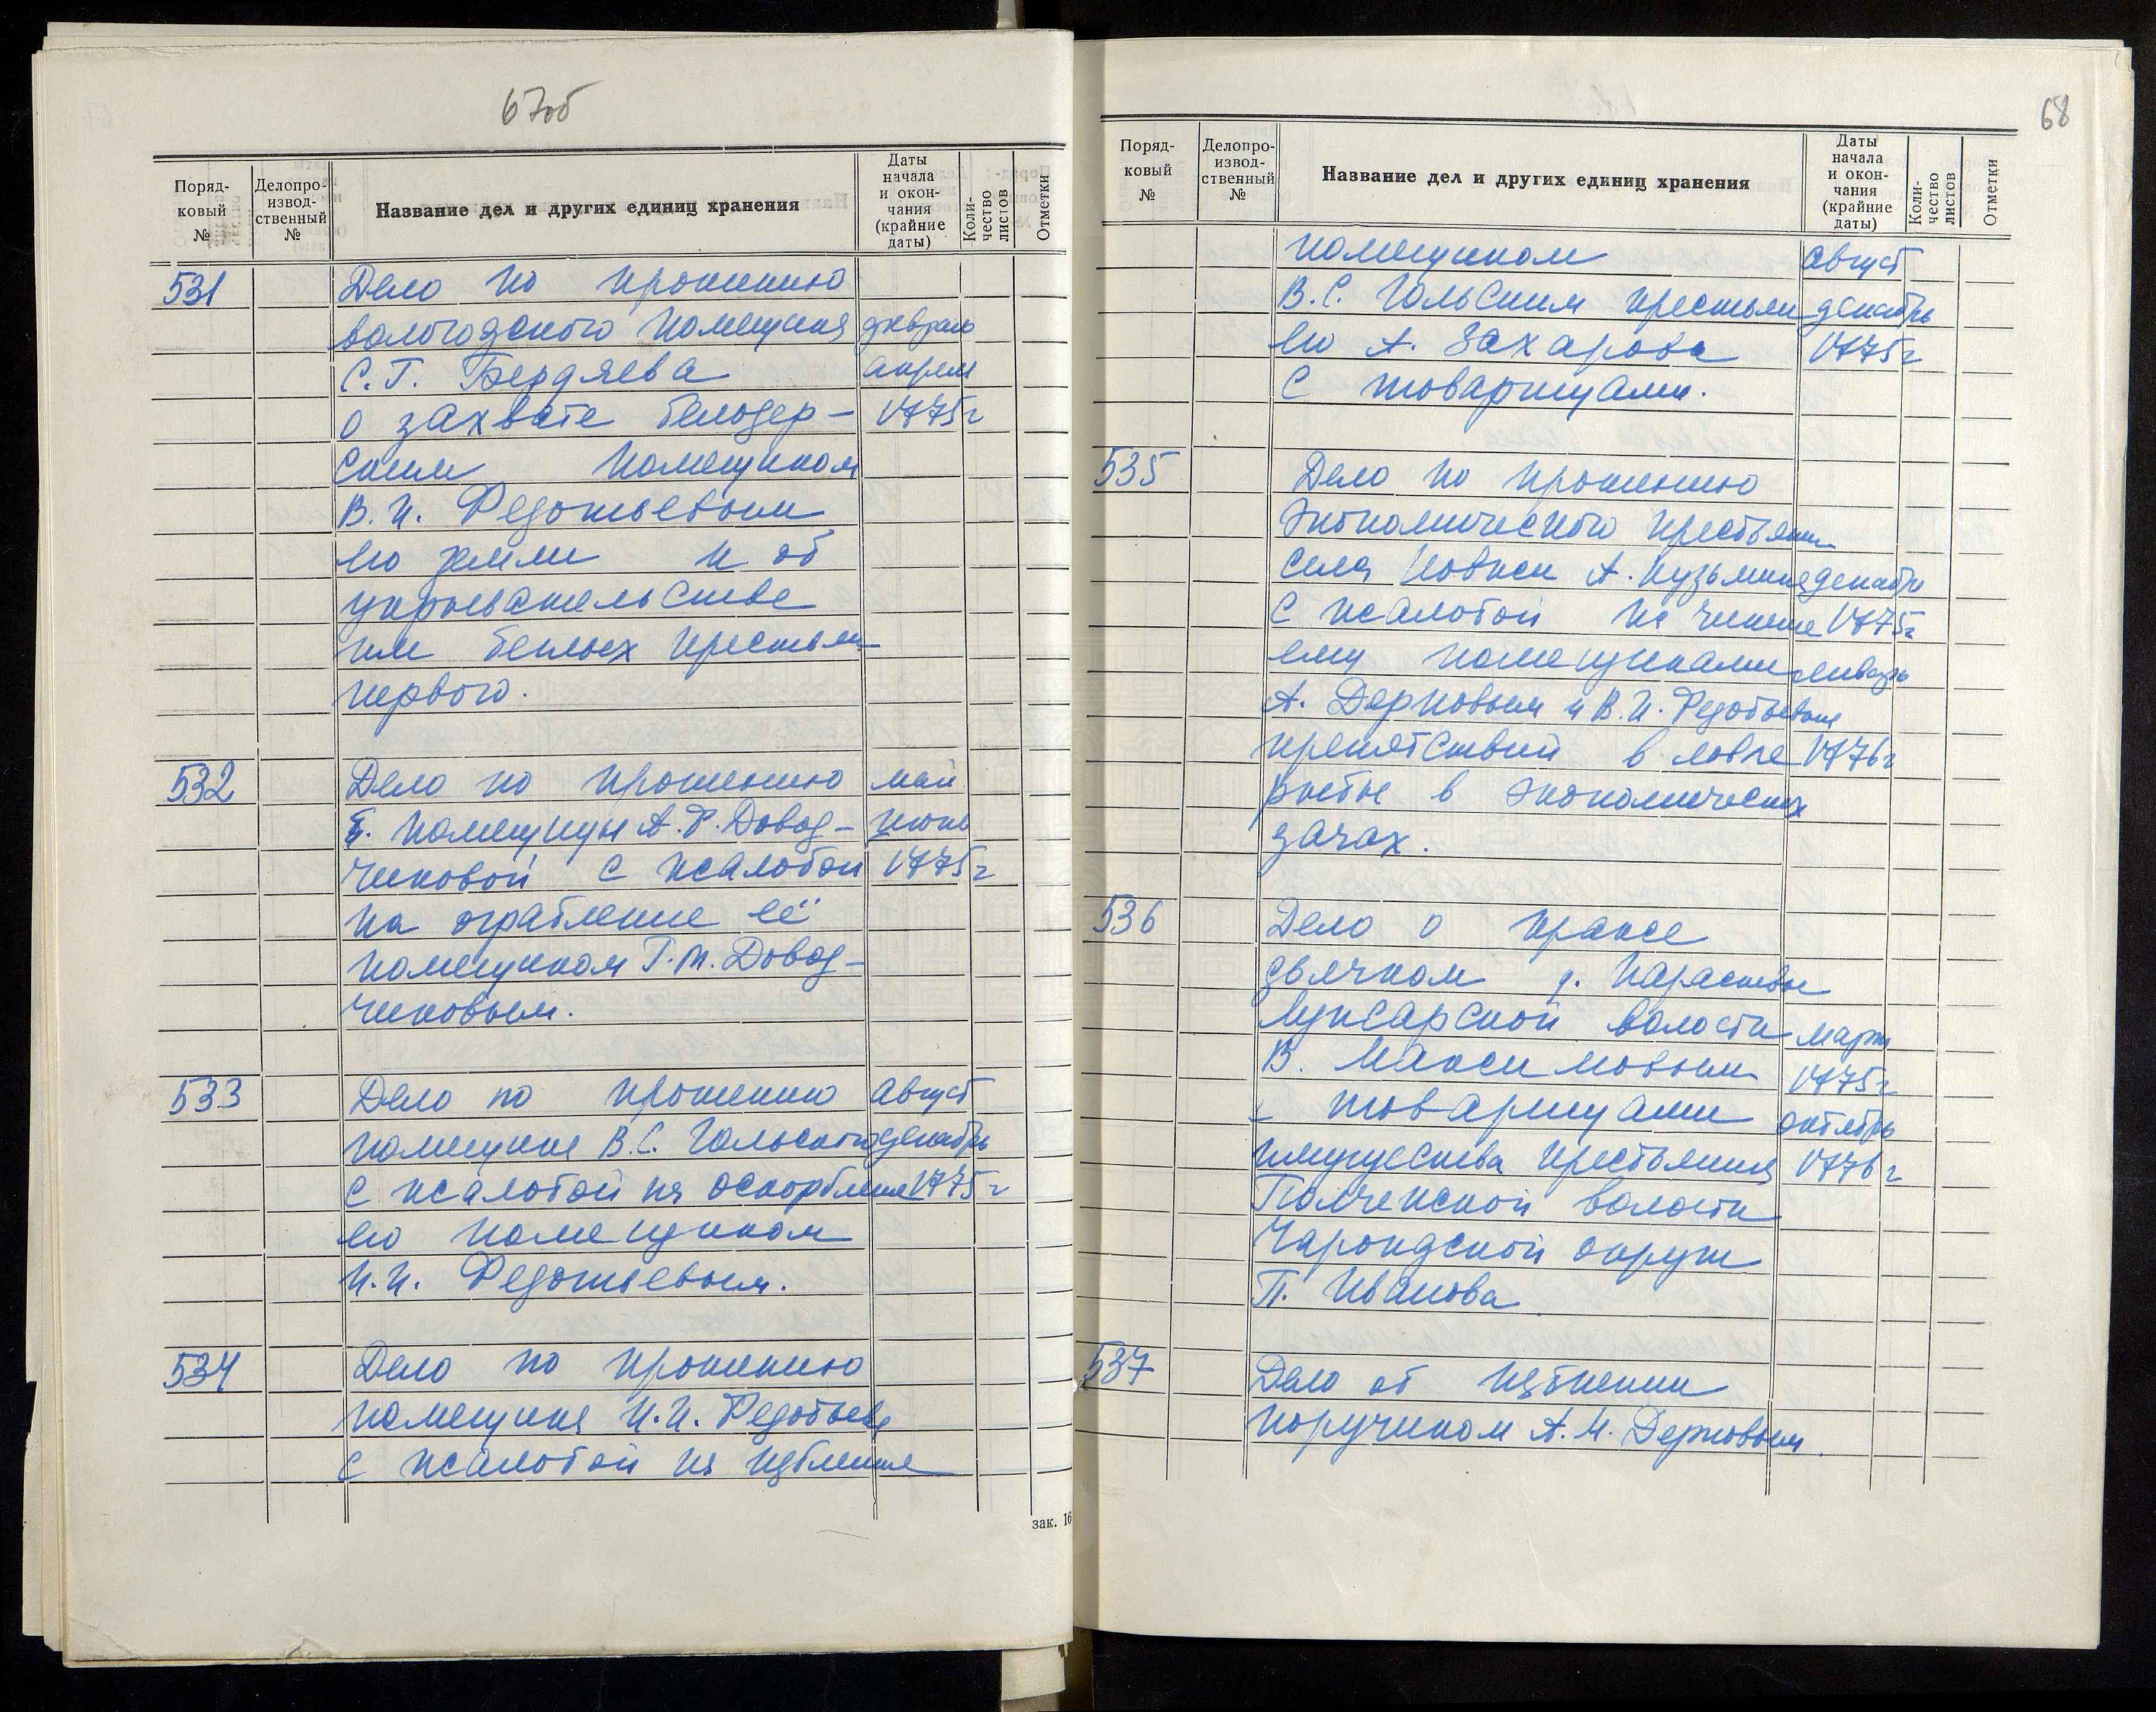 67об
Поряд-
ковый
№
Делопро-
извод-
ственный
№
Название дел и других единиц хранения
Даты
начала
и окон-
чания
(крайние
даты)
Коли-
чество
листов
Отметки
531
Дело по прошению
вологодского помещика февраль
С.Г. Бердяева апрель
о захвате белозер- 1775г
ским помещиком
В.И. Федотьевым
его земли и об
укрывательстве
им беглых крестьян
первого.
532
Дело по прошению май
б. помещицы А.Р. Довод- июнь
чиковой с жалобой 1775г
на ограбление её
помещиком Г.М. Довод-
чиковым.
533
Дело по прошению август
помещика В.С. Гальского декабрь
с жалобой на оскорбление 1775г
его помещиком
И.И. Федотьевым.
534
Дело по прошению
помещика И.И. Федотьева
с жалобой на избиение
зак. 16
68
Поряд-
ковый
№
Делопро-
извод-
ственный
№
Название дел и других единиц хранения
Даты
начала
и окон-
чания
(крайние
даты)
Коли-
чество
листов
Отметки
помещиком август
В.С. Гальским крестьян декабрь
его А. Захарова 1775г
с товарищами.
535
Дело по прошению
экономического крестьянина
села Ковжи А. Кузьмина декабрь
с жалобой на чинение 1775г
ему помещиками январь
А. Дерновым и В.И. Федотьевым
препятствий в ловле 1776г
рыбы в экономических
дачах.
536
Дело о краже
дьячком д.
волости март
В. Максимовым 1775г
с товарищами октябрь
имущества крестьянина 1776г
волости
Чарондской округи
П. Иванова
537
Дело об избиении
поручиком А.М. Дерновым